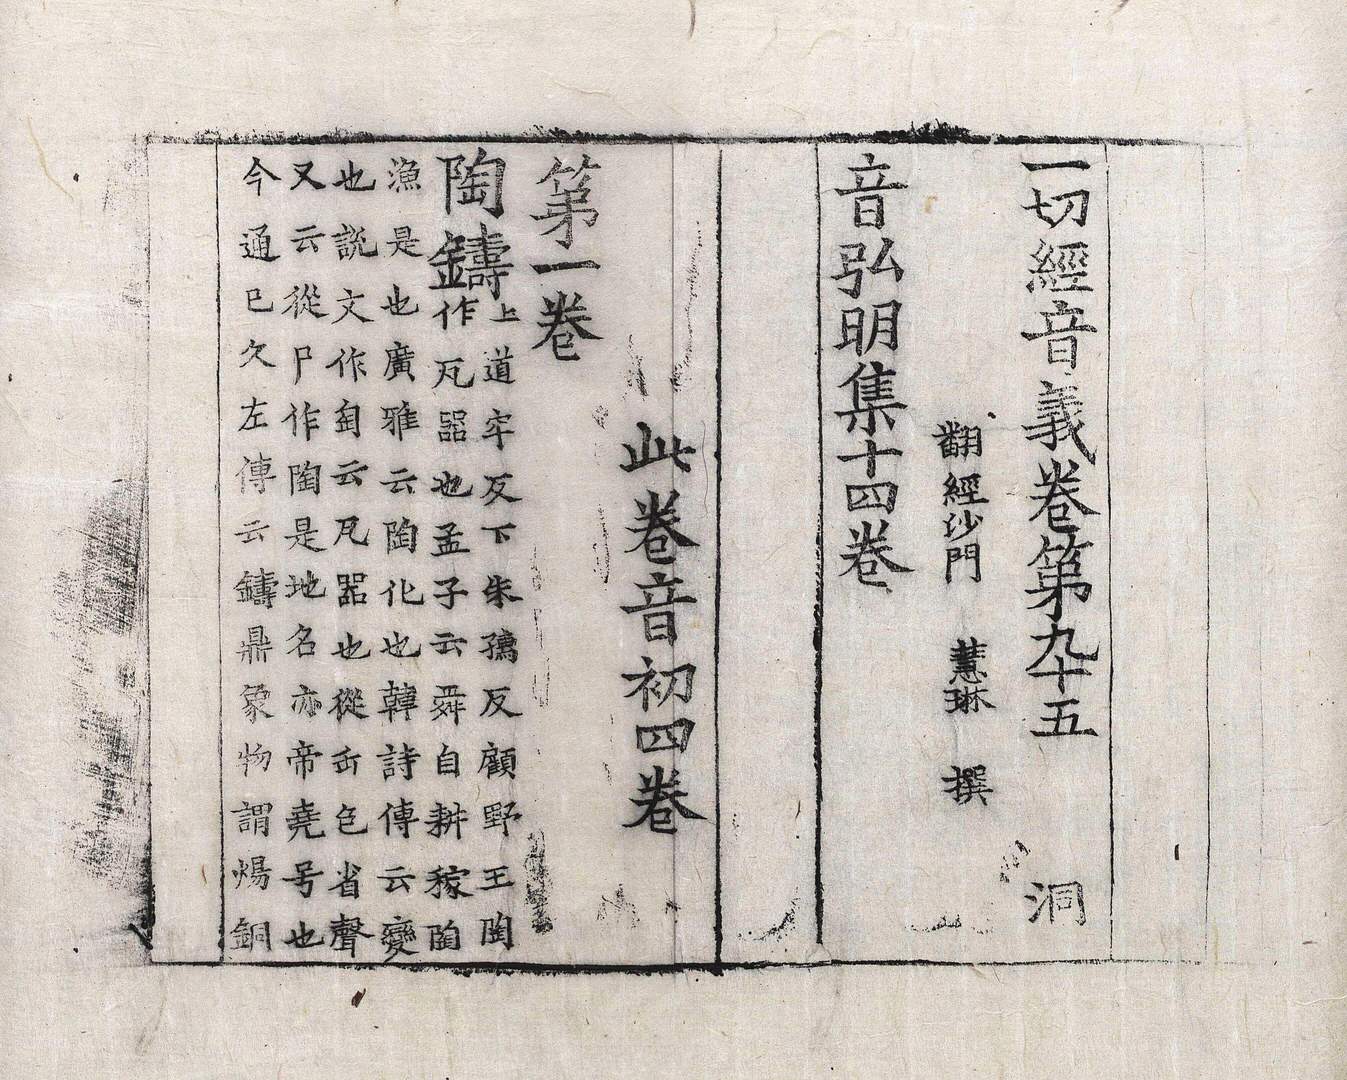 一切經音義卷第九十五　洞
翻經沙門　慧琳　撰
音弘明集十四卷
此卷音初四卷
第一卷
陶鑄
上道牢反下朱孺反顧野王陶
作瓦器也孟子云舜自耕稼陶
漁是也廣雅云陶化也韓詩傳云變
也說文作匋云瓦器也從缶色省聲
又云從尸作陶是地名亦帝堯号也
今通已久左傳云鑄鼎象物謂煬銅